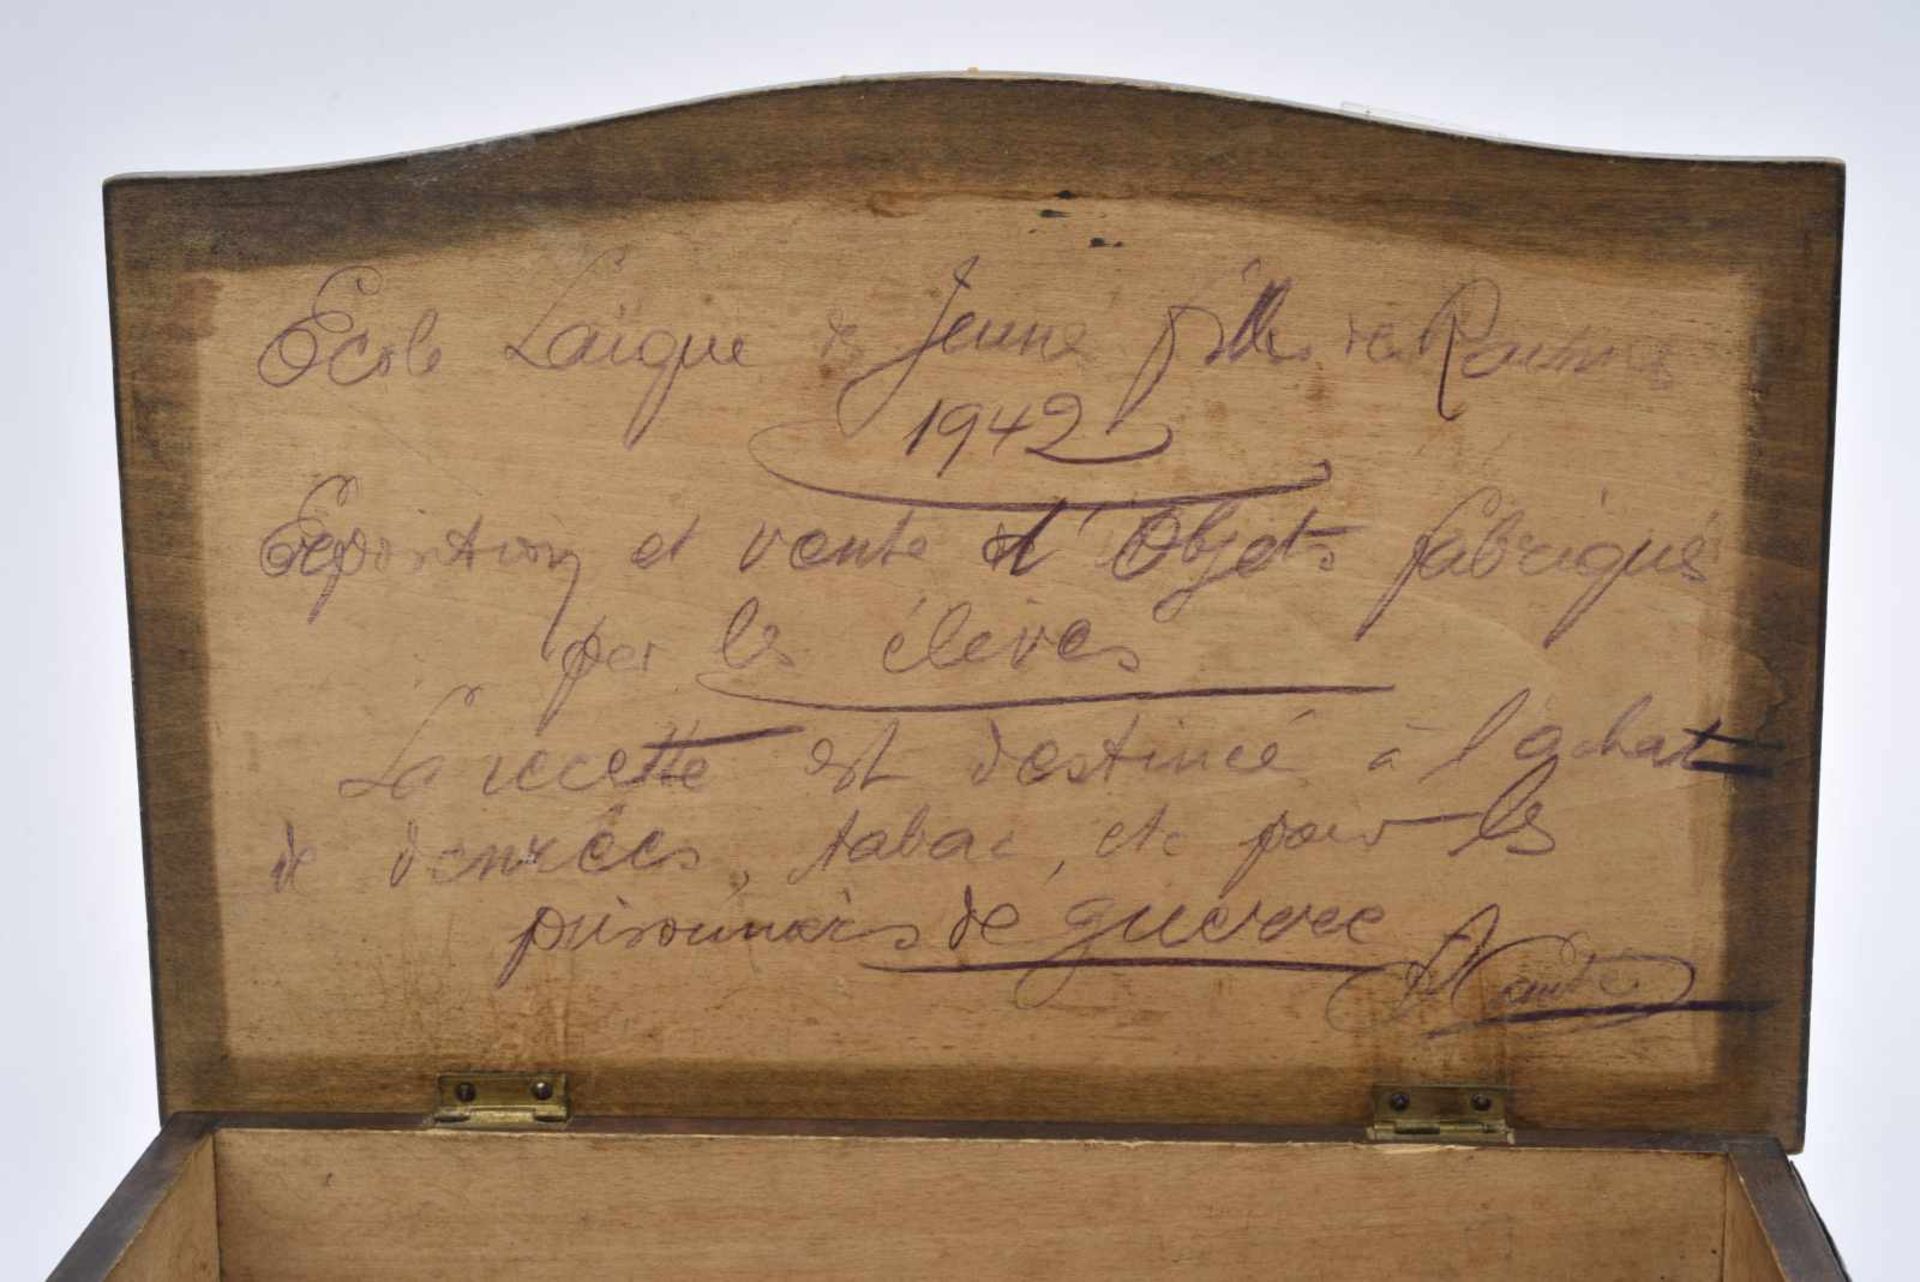 Ecole Laïque de Jeune filles de
1942
Exposition et vente d'Objets fabriqués
par les élèves
La recette est destiné à l'achat
de denrées, tabac, etc pour les
prisonniers de guerre